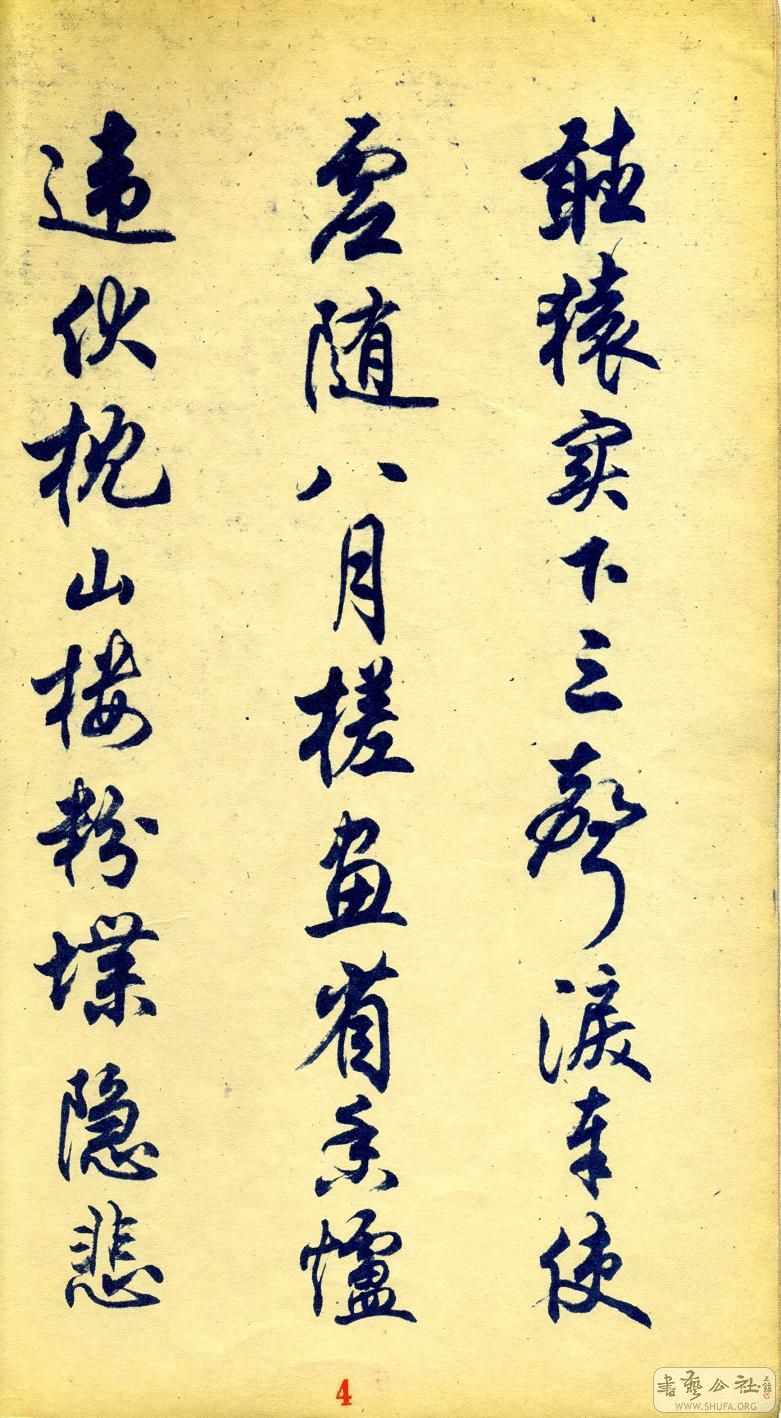 聽猿实下三聲淚奉使
虚随八月槎画省香爐
违伏枕山楼粉堞隐悲
4
書藝公社
WWW.SHUFA.ORG